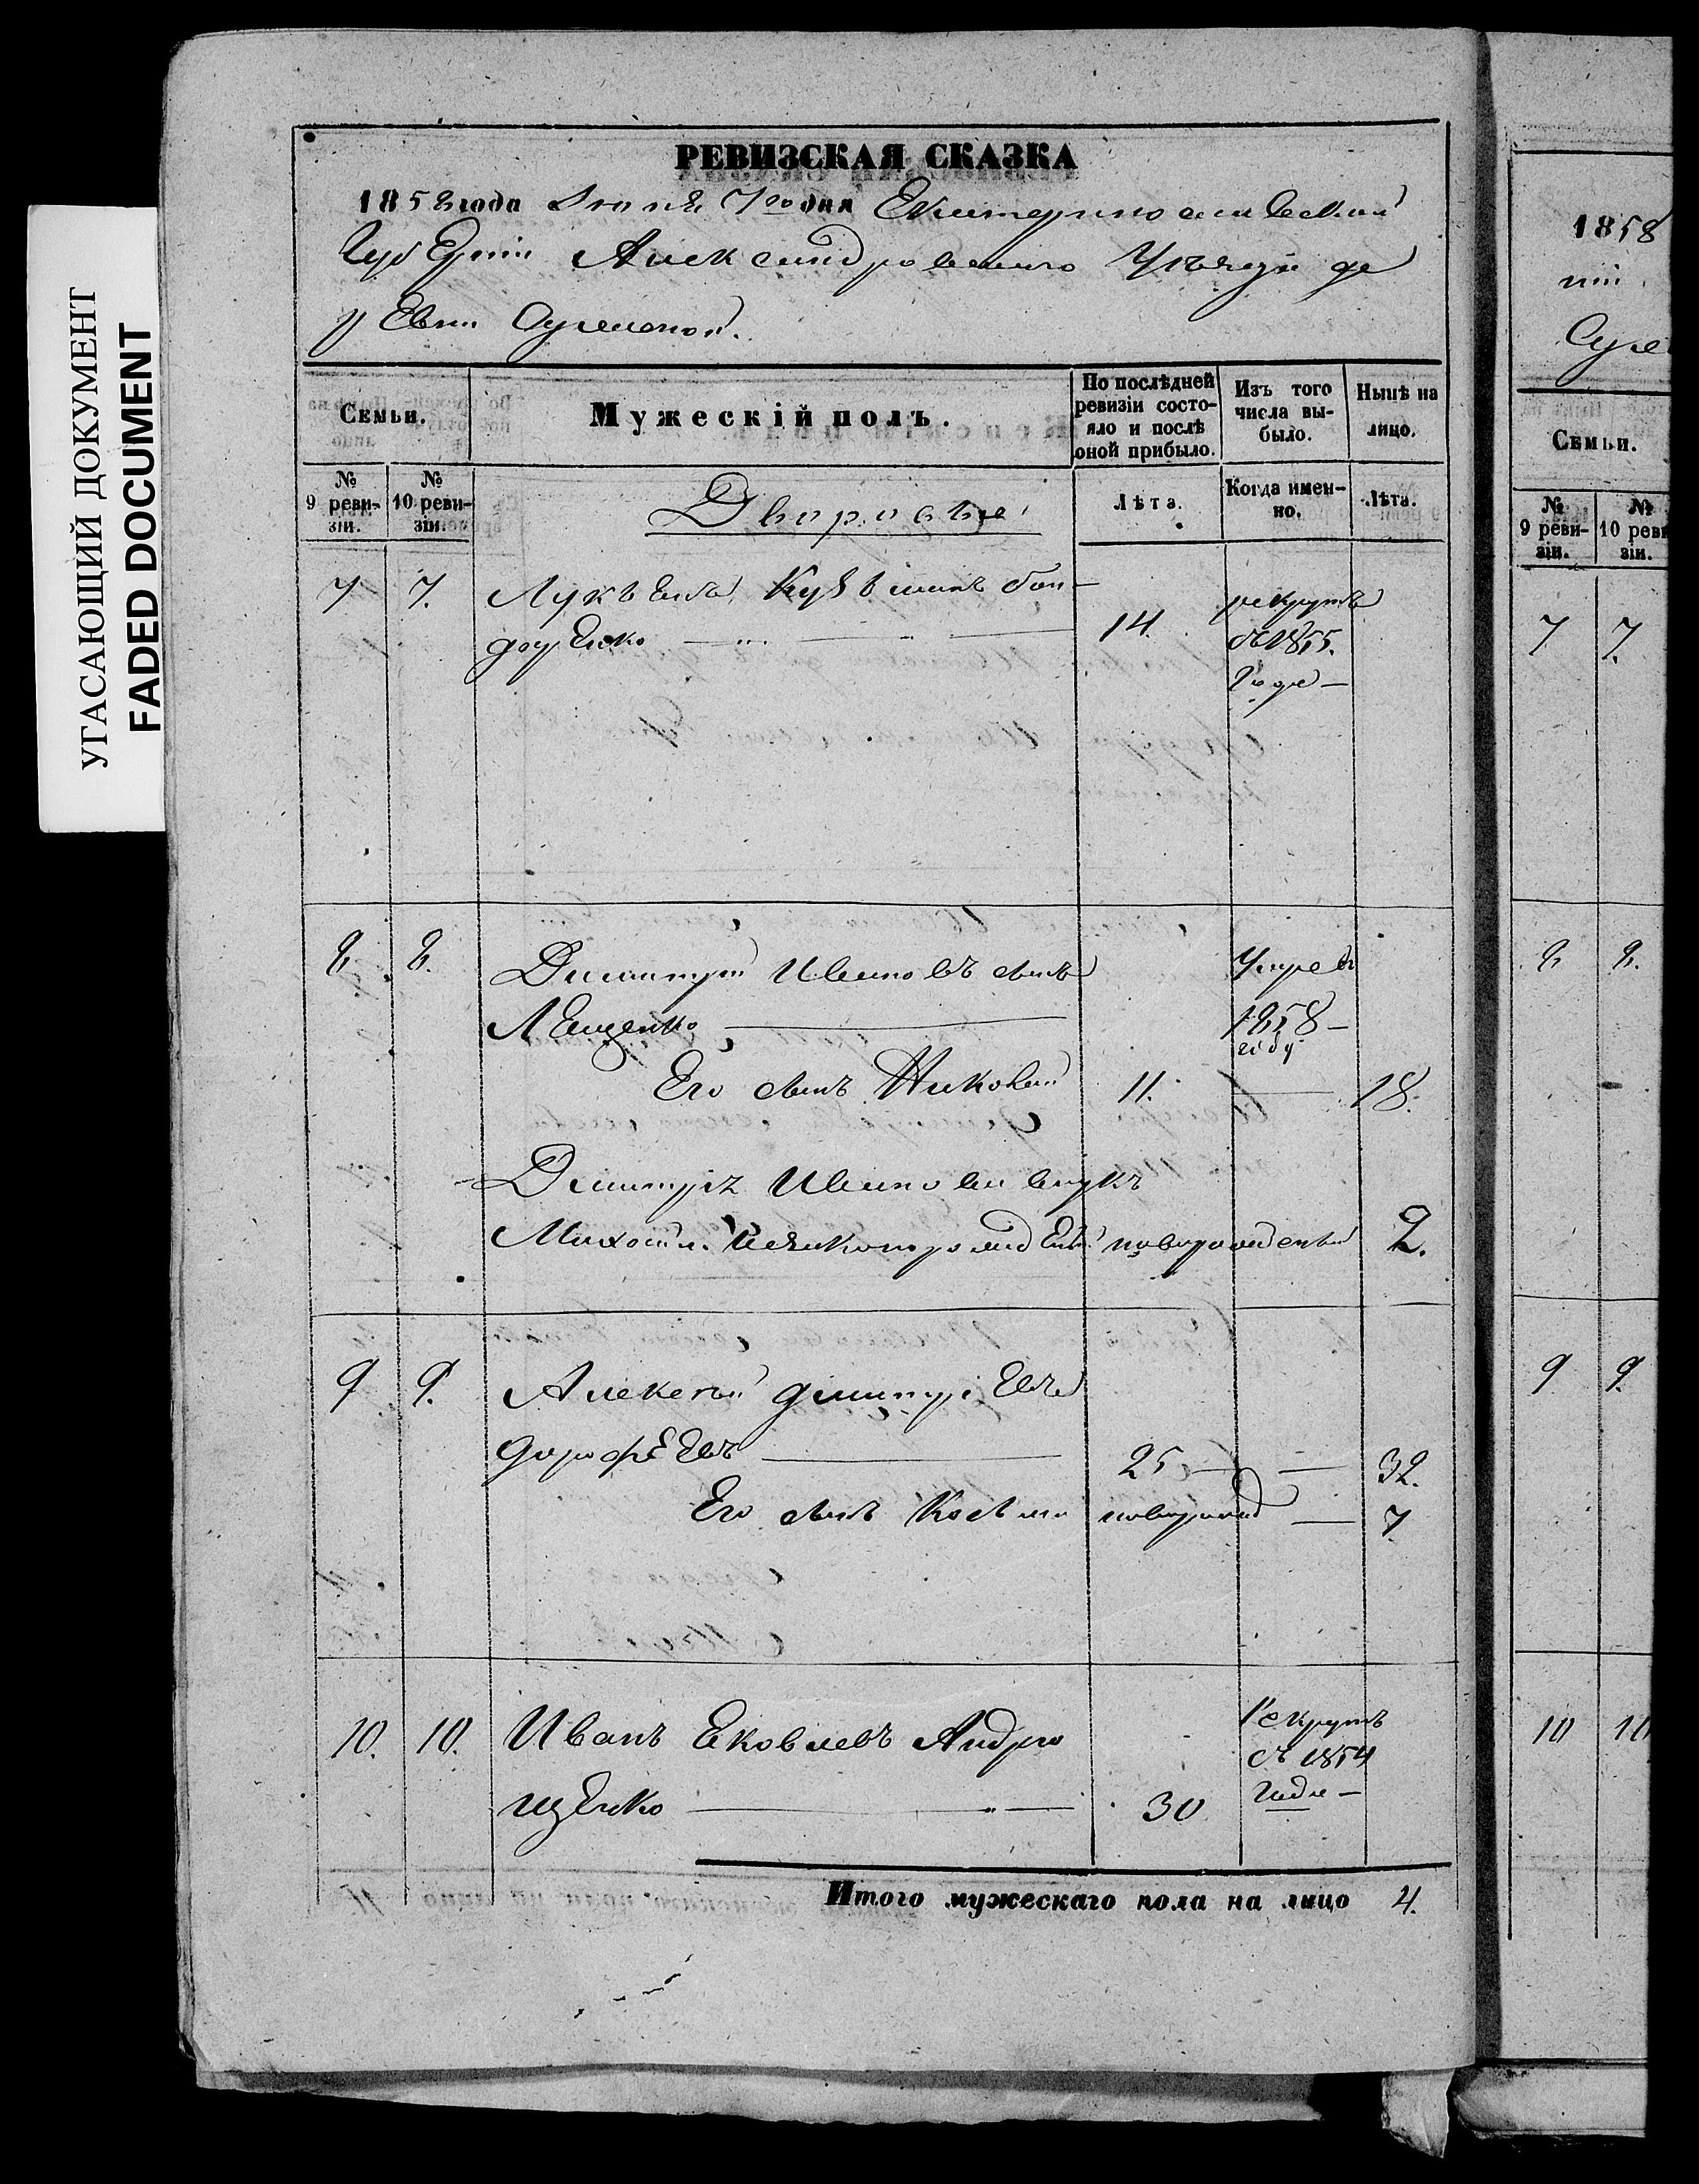 УГАСАЮЩИЙ ДОКУМЕНТ
FADED DOCUMENT
РЕВИЗСКАЯ СКАЗКА
1858 года Июня 7го дня Екатеринославской
Губерніи Александровскаго Уѣзда де
ревни
Семьи.
Мужескій полъ.
По послѣдней ревизіи состояло и послѣ оной прибыло.
Изъ того числа выбыло.
Нынѣ на лицо.
№ 9 ревизіи.
№ 10 ревизіи.
Дворовые
Лѣта.
Когда именно.
Лѣта.
7 7. Лукъ
доценко 14. рекрутъ
съ 1855.
Года
8 8. Димитрій Ивановъ сынъ Умре въ
Лещенко 1858
году
Его сынъ Николай 11. 18.
Димитрія Иванова внукъ
Михаилъ новорожденый 2.
9 9. Алексѣй Димитріевъ
Дорофѣевъ 25 32.
Его сынъ Косьма новорожд 7
10. 10. Иванъ Яковлевъ Андрю
щенко 30 Рекрутъ
съ 1854
Года
Итого мужескаго пола на лицо 4.
1858
ніи
Семьи.
№ 9 ревизіи.
№ 10 реви
зіи.
7 7.
8 8.
9 9.
10 10